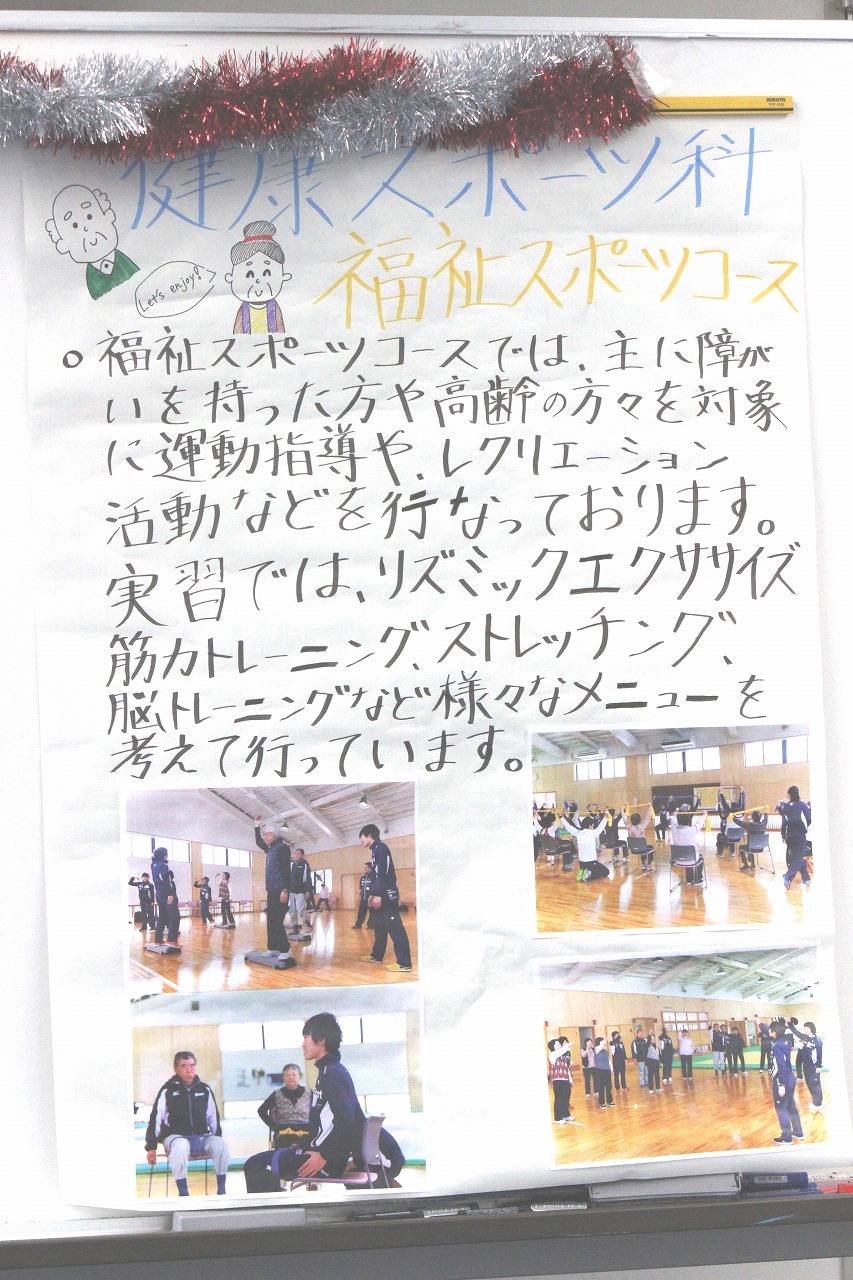 KOKUYO
健康スポーツ科
Let's enjoy!
福祉スポーツコース
○ 福祉スポーツコースでは、主に障が
いを持った方や高齢の方々を対象
に運動指導や、レクリエーション
活動などを行なっております。
実習では、リズミックエクササイズ
筋力トレーニング、ストレッチング、
脳トレーニングなど様々なメニューを
考えて行っています。